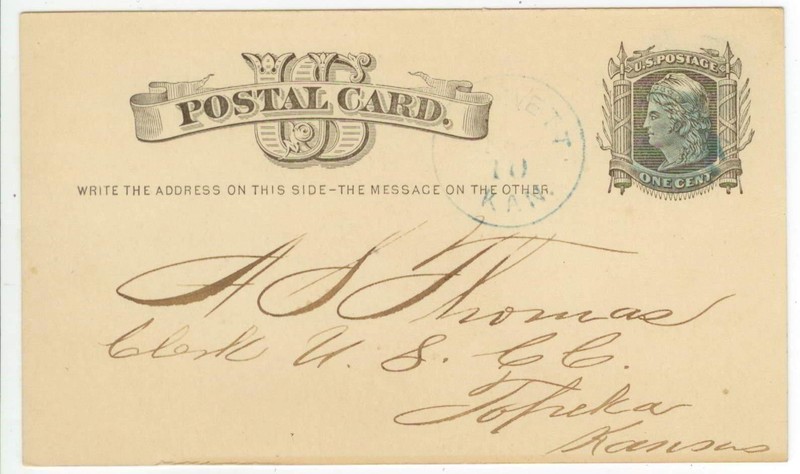 U.S. POSTAGE
US
POSTAL CARD.
NETT
10
KAN
ONE CENT
WRITE THE ADDRESS ON THIS SIDE–THE MESSAGE ON THE OTHER.
A S Thomas
Clerk U. S. C.C.
Topeka
Kansas